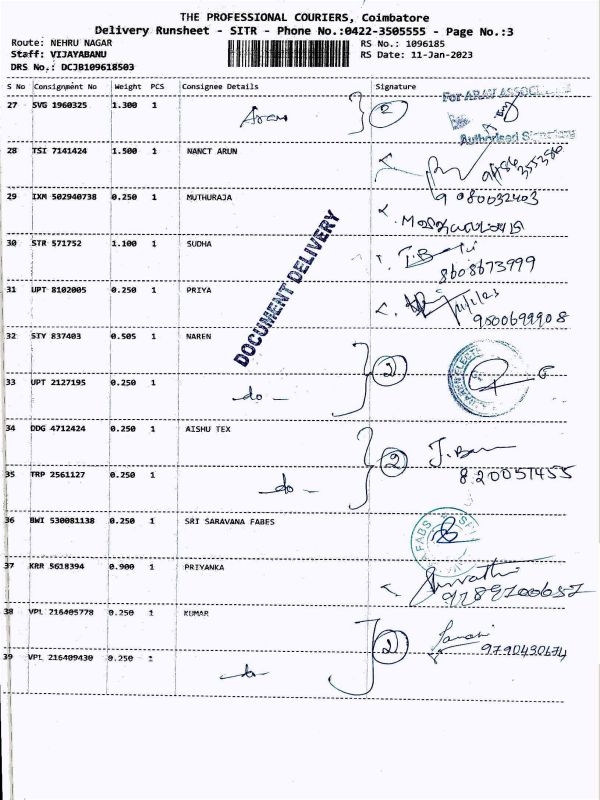 THE PROFESSIONAL COURIERS, Coimbatore
Delivery Runsheet - SITR - Phone No.:0422-3505555 - Page No.:3
Route: NEHRU NAGAR RS No.: 1096185
Staff: VIJAYABANU RS Date: 11-Jan-2023
DRS No.: DCJB109618503
S No Consignment No Weight PCS Consignee Details Signature
For ARAV ASSOC
27 SVG 1960325 1.300 1 Arav 2
Authorised Signatory
28 TSI 7141424 1.500 1 NANCT ARUN
29 IXM 502940738 0.250 1 MUTHURAJA 9080032403
30 STR 571752 1.100 1 SUDHA
8608673999
31 UPT 8102005 0.250 1 PRIYA
9500699908
DOCUMENT DELIVERY
32 STY 837403 0.505 1 NAREN 2
33 UPT 2127195 0.250 1
-do-
34 DDG 4712424 0.250 1 AISHU TEX 2
820057455
35 TRP 2561127 0.250 1
-do-
36 BWI 530081138 0.250 1 SRI SARAVANA FABES
37 KRR 5618394 0.900 1 PRIYANKA
9789700657
38 VPL 216405778 0.250 1 KUMAR 2
9790430674
39 VPL 216409430 0.250 1
-do-